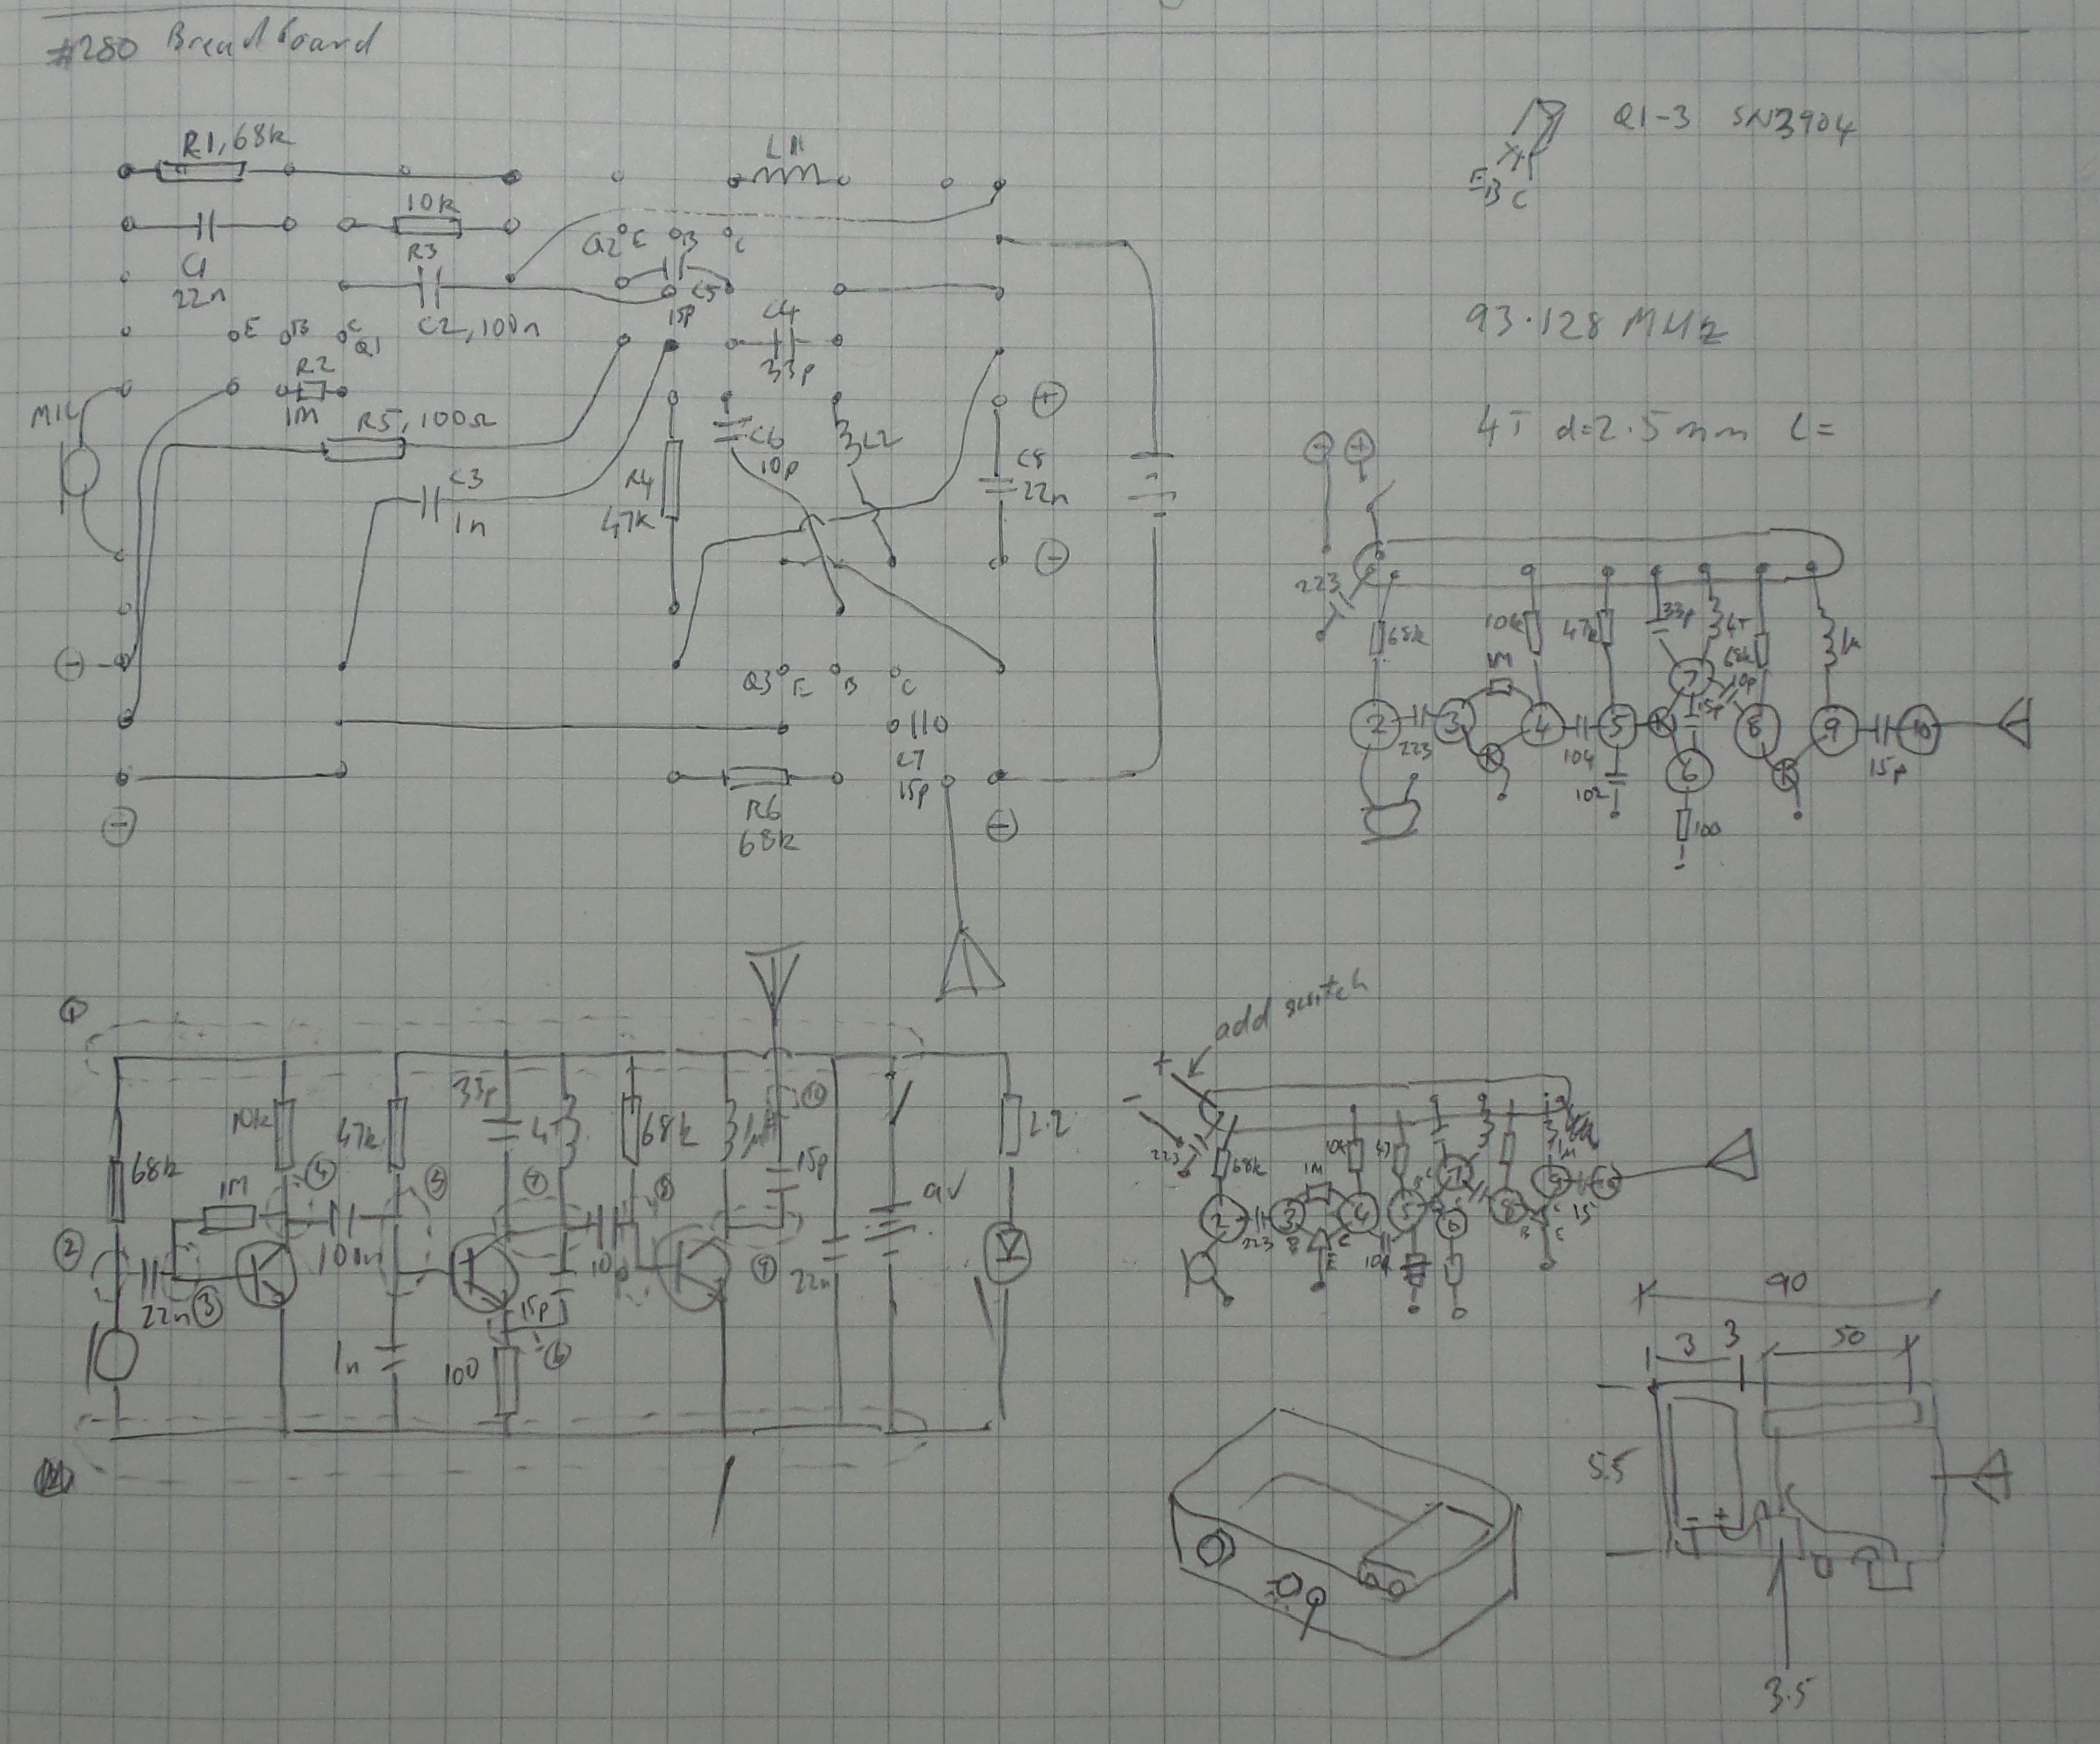 #280 Breadboard
R1, 68k
L1
10k
R3
C1
22n
Q2 E B C
C5
15p
C2, 100n
E B C
Q1
C4
33p
R2
1M
MIC
R5, 100Ω
C3
1n
R4
47k
C6
10p
L2
+
C8
22n
-
-
Q3 E B C
C7
15p
R6
68k
-
-
Q1-3 SN3904
E B C
93.128 MHz
4T d=2.5mm L=
- +
223
68k
10k
47k
33p
4T
68k
1M
10p
15p
2
223
3
4
104
5
7
6
8
9
15p
10
102
100
1
10k
47k
33p
4T
68k
1μ
10
15p
2.2
68k
1M
4
5
7
8
9V
2
22n
3
100n
10p
9
22n
15p
6
1n
100
add switch
+
-
223
68k
10k
47
1M
1μ
2
223
3
4
5
7
6
8
9
10
15
B E C
104
B C E
90
3 3
50
5.5
- +
3.5